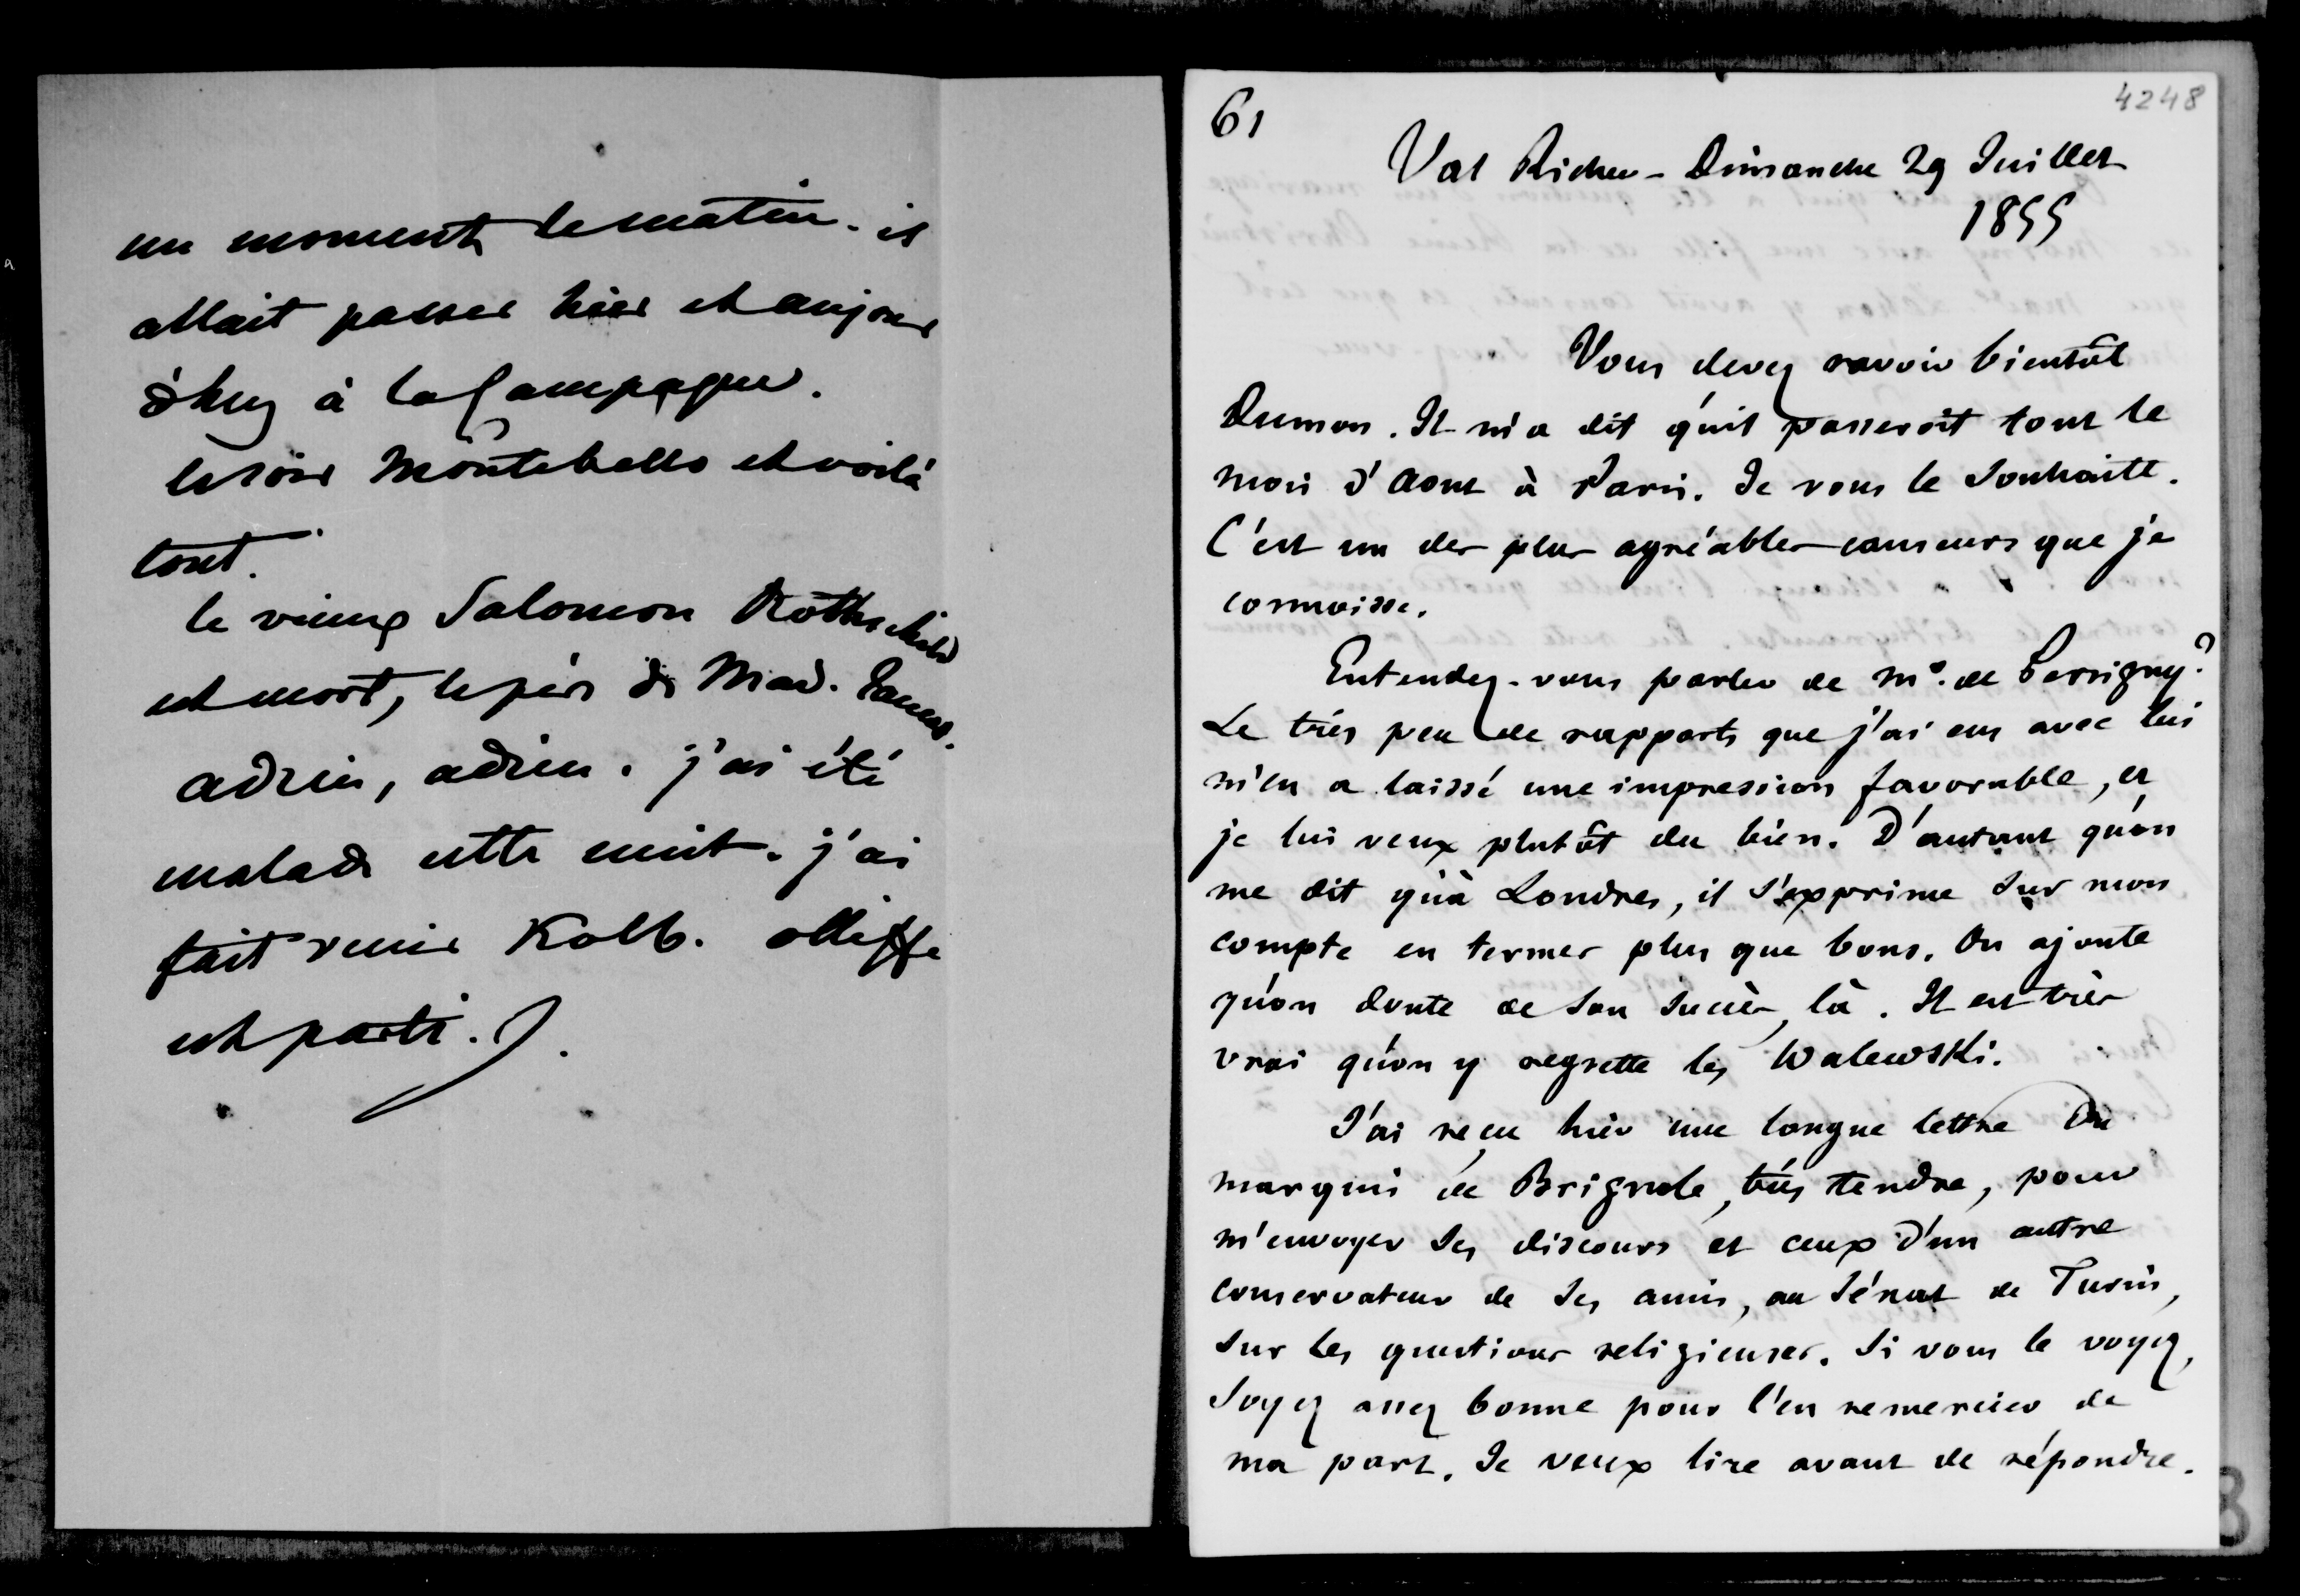 un moment le matin. il
allait passer hier et aujour
d'huy à la Campagne.
le soir Montebello et voilà
tout.
le vieux Salomon Rothschild
est mort, le père de Mad. James.
adieu, adieu. j'ai été
malade cette nuit. j'ai
fait venir Kolb. olliffe
est parti.
61
4248
Val Richer - Dimanche 29 Juillet
1855
Vous devez ravoir bientôt
Dumon. Il m'a dit qu'il passeroit tout le
mois d'Aout à Paris. Je vous le souhaite.
C'est un des plus agréables causeurs que je
connoisse.
Entendez-vous parler de Mr. de Persigny?
Le très peu de rapports que j'ai eus avec lui
m'en a laissé une impression favorable, et
je lui veux plutôt du bien. D'autant qu'on
me dit qu'à Londres, il s'exprime sur mon
compte en termes plus que bons. On ajoute
qu'on doute de son succès là. Il est très
vrai qu'on y regrette les Walewski.
J'ai reçu hier une longue lettre du
marquis de Brignole, très tendre, pour
m'envoyer ses discours et ceux d'un autre
conservateur de ses amis, au Sénat de Turin,
sur les questions religieuses. Si vous le voyez,
soyez assez bonne pour l'en remercier de
ma part. Je veux lire avant de répondre.